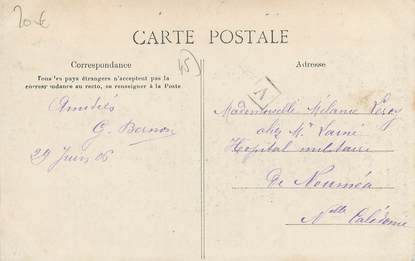 20€
CARTE POSTALE
Correspondance
Tous les pays étrangers n'acceptent pas la
correspondance au recto, se renseigner à la Poste
Amitiés
G. Bernon
29 Juin 06
Adresse
Mademoiselle Mélanie Leroy
chez Mr Lainé
Hopital militaire
De Nouméa
Nlle Calédonie